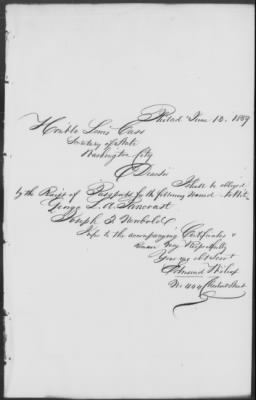 Philad June 10. 1859
Honble Lewis Cass
Secretary of State
Washington City
D Sir
I shall be obliged
by the Receipt of Passports for the following named - to Wit,
George L. A. Pancoast
Joseph A. Newbold
refer to the accompanying Certificates &
Remain Very Respectfully
Your obt Servt
Edmund Wilcox
No 404 Chestnut Street